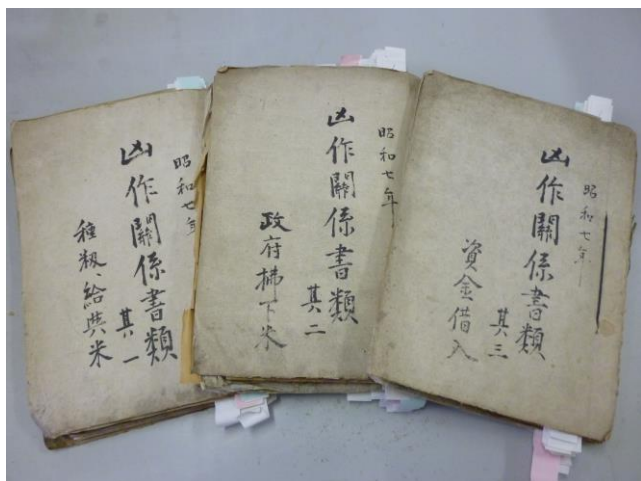 昭和七年
凶作關係書類
其一
種籾、給與米
昭和七年
凶作關係書類
其二
政府拂下米
昭和七年
凶作關係書類
其三
資金借入